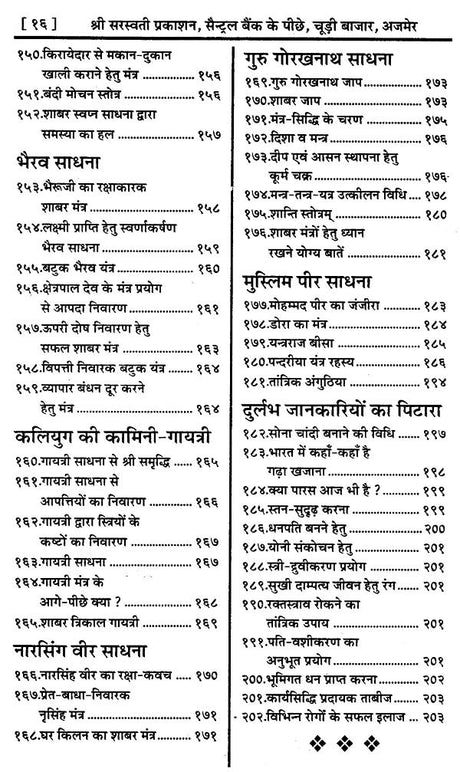 [ १६ ] श्री सरस्वती प्रकाशन, सैन्ट्रल बैंक के पीछे, चूड़ी बाजार, अजमेर
१५०.किरायेदार से मकान-दुकान
खाली कराने हेतु मंत्र ................. १५६
१५१.बंदी मोचन स्तोत्र .................. १५६
१५२.शाबर स्वप्न साधना द्वारा
समस्या का हल ..................... १५७
भैरव साधना
१५३.भैरूजी का रक्षाकारक
शाबर मंत्र ........................... १५८
१५४.लक्ष्मी प्राप्ति हेतु स्वर्णाकर्षण
भैरव साधना ......................... १५९
१५५.बटुक भैरव यंत्र ................... १६०
१५६.क्षेत्रपाल देव के मंत्र प्रयोग
से आपदा निवारण ................. १६१
१५७.ऊपरी दोष निवारण हेतु
सफल शाबर मंत्र ................... १६३
१५८.विपत्ती निवारक बटुक यंत्र ....... १६४
१५९.व्यापार बंधन दूर करने
हेतु मंत्र ............................. १६४
कलियुग की कामिनी-गायत्री
१६०.गायत्री साधना से श्री समृद्धि ...... १६५
१६१.गायत्री साधना से
आपत्तियों का निवारण ............. १६६
१६२.गायत्री द्वारा स्त्रियों के
कष्टों का निवारण .................. १६७
१६३.गायत्री साधना ..................... १६७
१६४.गायत्री मंत्र के
आगे-पीछे क्या ? ................... १६८
१६५.शाबर त्रिकाल गायत्री ............. १६९
नारसिंग वीर साधना
१६६.नारसिंह वीर का रक्षा-कवच ..... १७०
१६७.प्रेत-बाधा-निवारक
नृसिंह मंत्र ........................... १७१
१६८.घर किलन का शाबर मंत्र......... १७१
गुरु गोरखनाथ साधना
१६९.गुरु गोरखनाथ जाप............... १७३
१७०.शाबर जाप ......................... १७३
१७१.मंत्र-सिद्धि के चरण .............. १७५
१७२.दिशा व मन्त्र ...................... १७६
१७३.दीप एवं आसन स्थापना हेतु
कूर्म चक्र............................ १७६
१७४.मन्त्र-तन्त्र-यत्र उत्कीलन विधि.... १७८
१७५.शान्ति स्तोत्रम् .................... १८०
१७६.शाबर मंत्रों हेतु ध्यान
रखने योग्य बातें ................... १८१
मुस्लिम पीर साधना
१७७.मोहम्मद पीर का जंजीरा ......... १८३
१७८.डोरा का मंत्र ....................... १८४
१७९.यन्त्रराज बीसा ..................... १८५
१८०.पन्दरीया यंत्र रहस्य............... १८६
१८१.तांत्रिक अंगुठिया .................. १९४
दुर्लभ जानकारियों का पिटारा
१८२.सोना चांदी बनाने की विधि ...... १९७
१८३.भारत में कहाँ-कहाँ है
गढ़ा खजाना ....................... १९८
१८४.क्या पारस आज भी है ?.......... १९९
१८५.स्तन-सुदृढ़ करना ................. १९९
१८६.धनपति बनने हेतु.................. २००
१८७.योनी संकोचन हेतु ................ २०१
१८८.स्त्री-द्रुवीकरण प्रयोग ............. २०१
१८९.सुखी दाम्पत्य जीवन हेतु रंग...... २०१
१९०.रक्तस्त्राव रोकने का
तांत्रिक उपाय ...................... २०१
१९१.पति-वशीकरण का
अनुभूत प्रयोग...................... २०१
२००.भूमिगत धन प्राप्त करना.......... २०२
२०१.कार्यसिद्धि प्रदायक ताबीज....... २०३
२०२.विभिन्न रोगों के सफल इलाज ... २०३